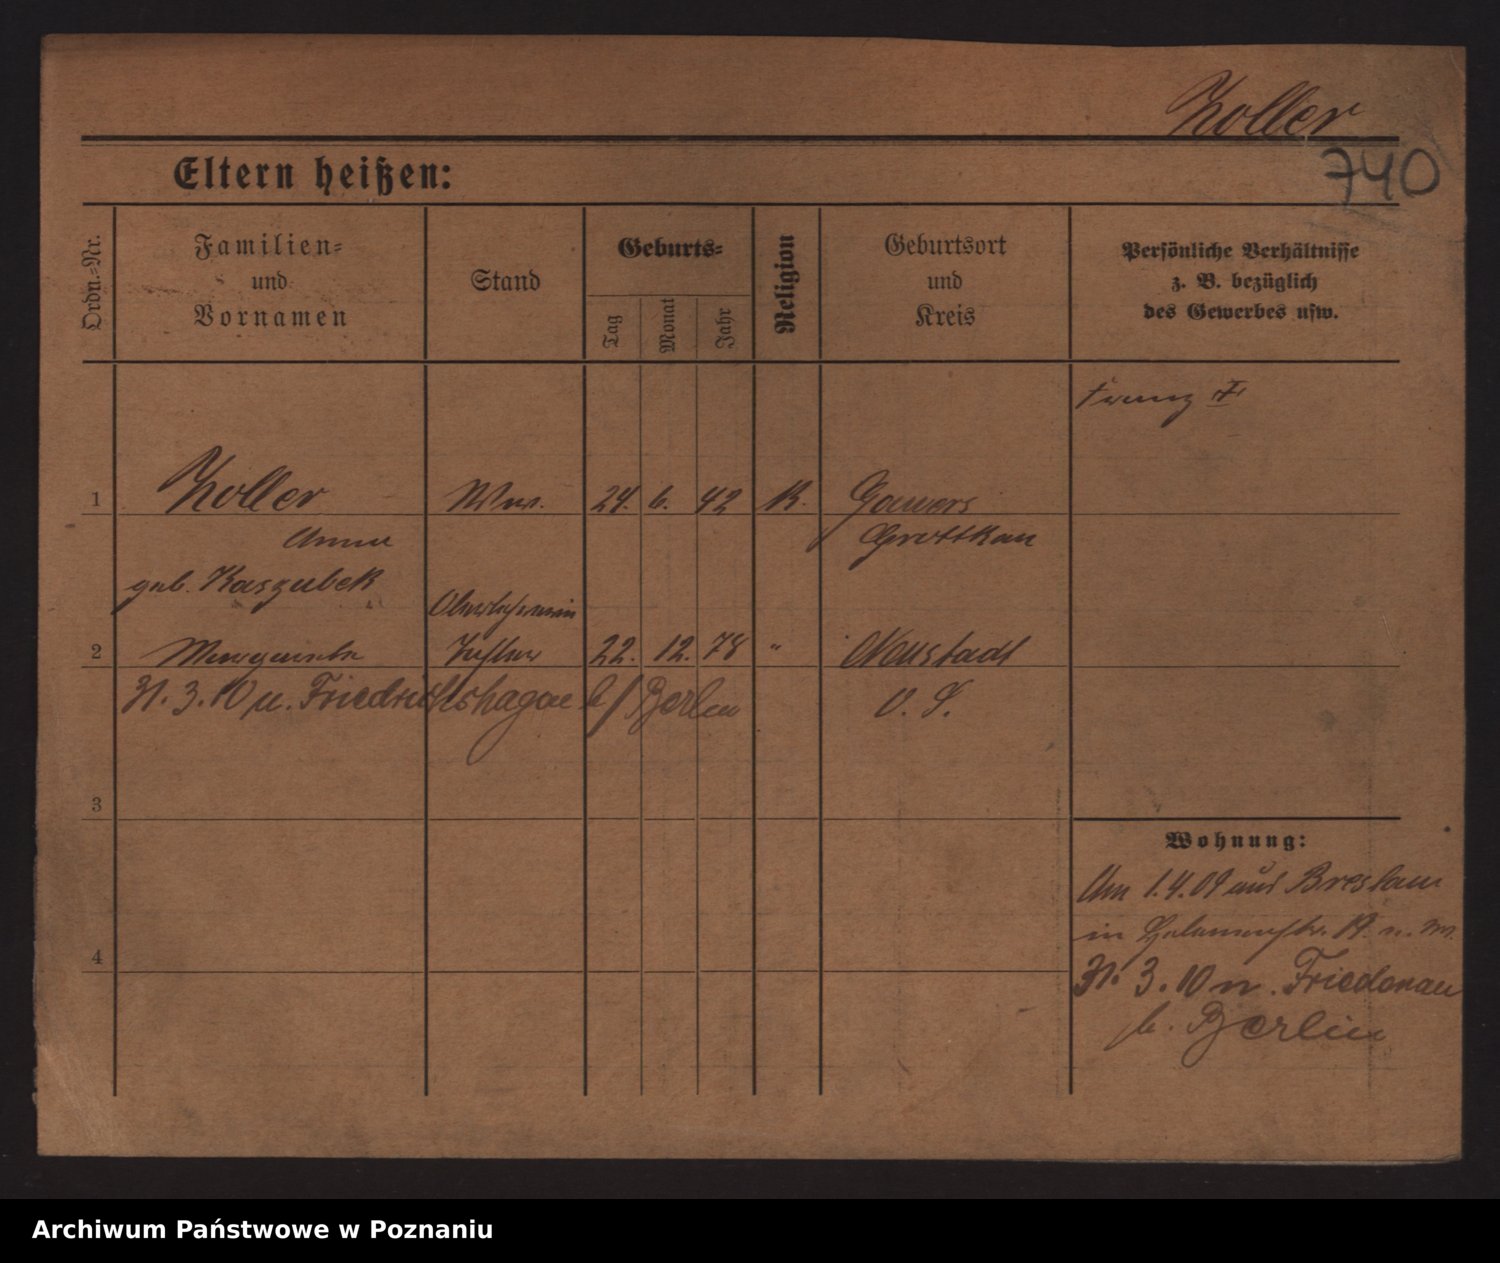 Koller
740
Eltern heißen:
Ordn.-Nr.
Familien-
und
Vornamen
Stand
Geburts-
Tag
Monat
Jahr
Religion
Geburtsort
und
Kreis
Persönliche Verhältnisse
z. B. bezüglich
des Gewerbes usw.
Franz †
1 Koller Ww. 24. 6. 42 K. Gauers
Anna Grottkau
geb. Kaszubek
Oberlehrerin
2 Margarete Tochter 22. 12. 78 " Neustadt
31. 3. 10 n. Friedrichshagen b/ Berlin O. S.
3
Wohnung:
Am 1.4.09 aus Breslau
in
4
31. 3. 10 n. Friedenau
b. Berlin
Archiwum Państwowe w Poznaniu